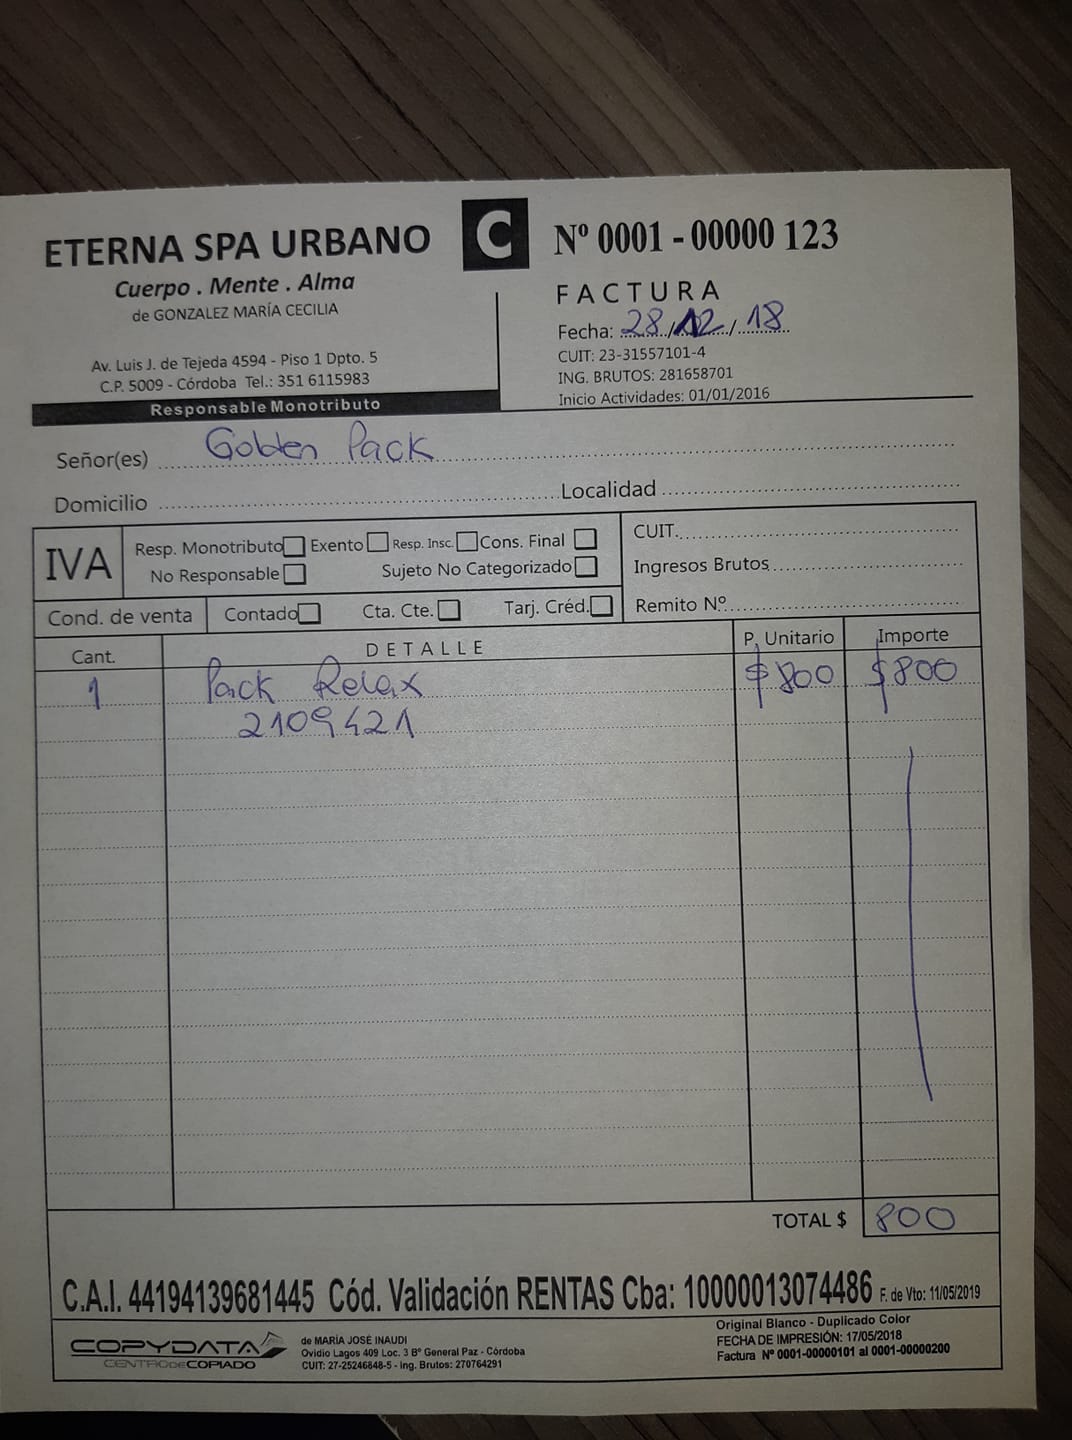 ETERNA SPA URBANO
Cuerpo . Mente . Alma
de GONZALEZ MARÍA CECILIA
Av. Luis J. de Tejeda 4594 - Piso 1 Dpto. 5
C.P. 5009 - Córdoba Tel.: 351 6115983
Responsable Monotributo
C
Nº 0001 - 00000 123
FACTURA
Fecha: 28/12/18
CUIT: 23-31557101-4
ING. BRUTOS: 281658701
Inicio Actividades: 01/01/2016
Señor(es) Golden Pack
Domicilio Localidad
IVA
Resp. Monotributo Exento Resp. Insc. Cons. Final
No Responsable Sujeto No Categorizado
CUIT.
Ingresos Brutos
Remito Nº
Cond. de venta Contado Cta. Cte. Tarj. Créd.
Cant. DETALLE P. Unitario Importe
1 Pack Relax $800 $800
2109421
TOTAL $ 800
C.A.I. 44194139681445 Cód. Validación RENTAS Cba: 10000013074486 F. de Vto: 11/05/2019
COPYDATA
CENTRO DE COPIADO
de MARÍA JOSÉ INAUDI
Ovidio Lagos 409 Loc. 3 Bº General Paz - Córdoba
CUIT: 27-25246848-5 - Ing. Brutos: 270764291
Original Blanco - Duplicado Color
FECHA DE IMPRESIÓN: 17/05/2018
Factura Nº 0001-00000101 al 0001-00000200